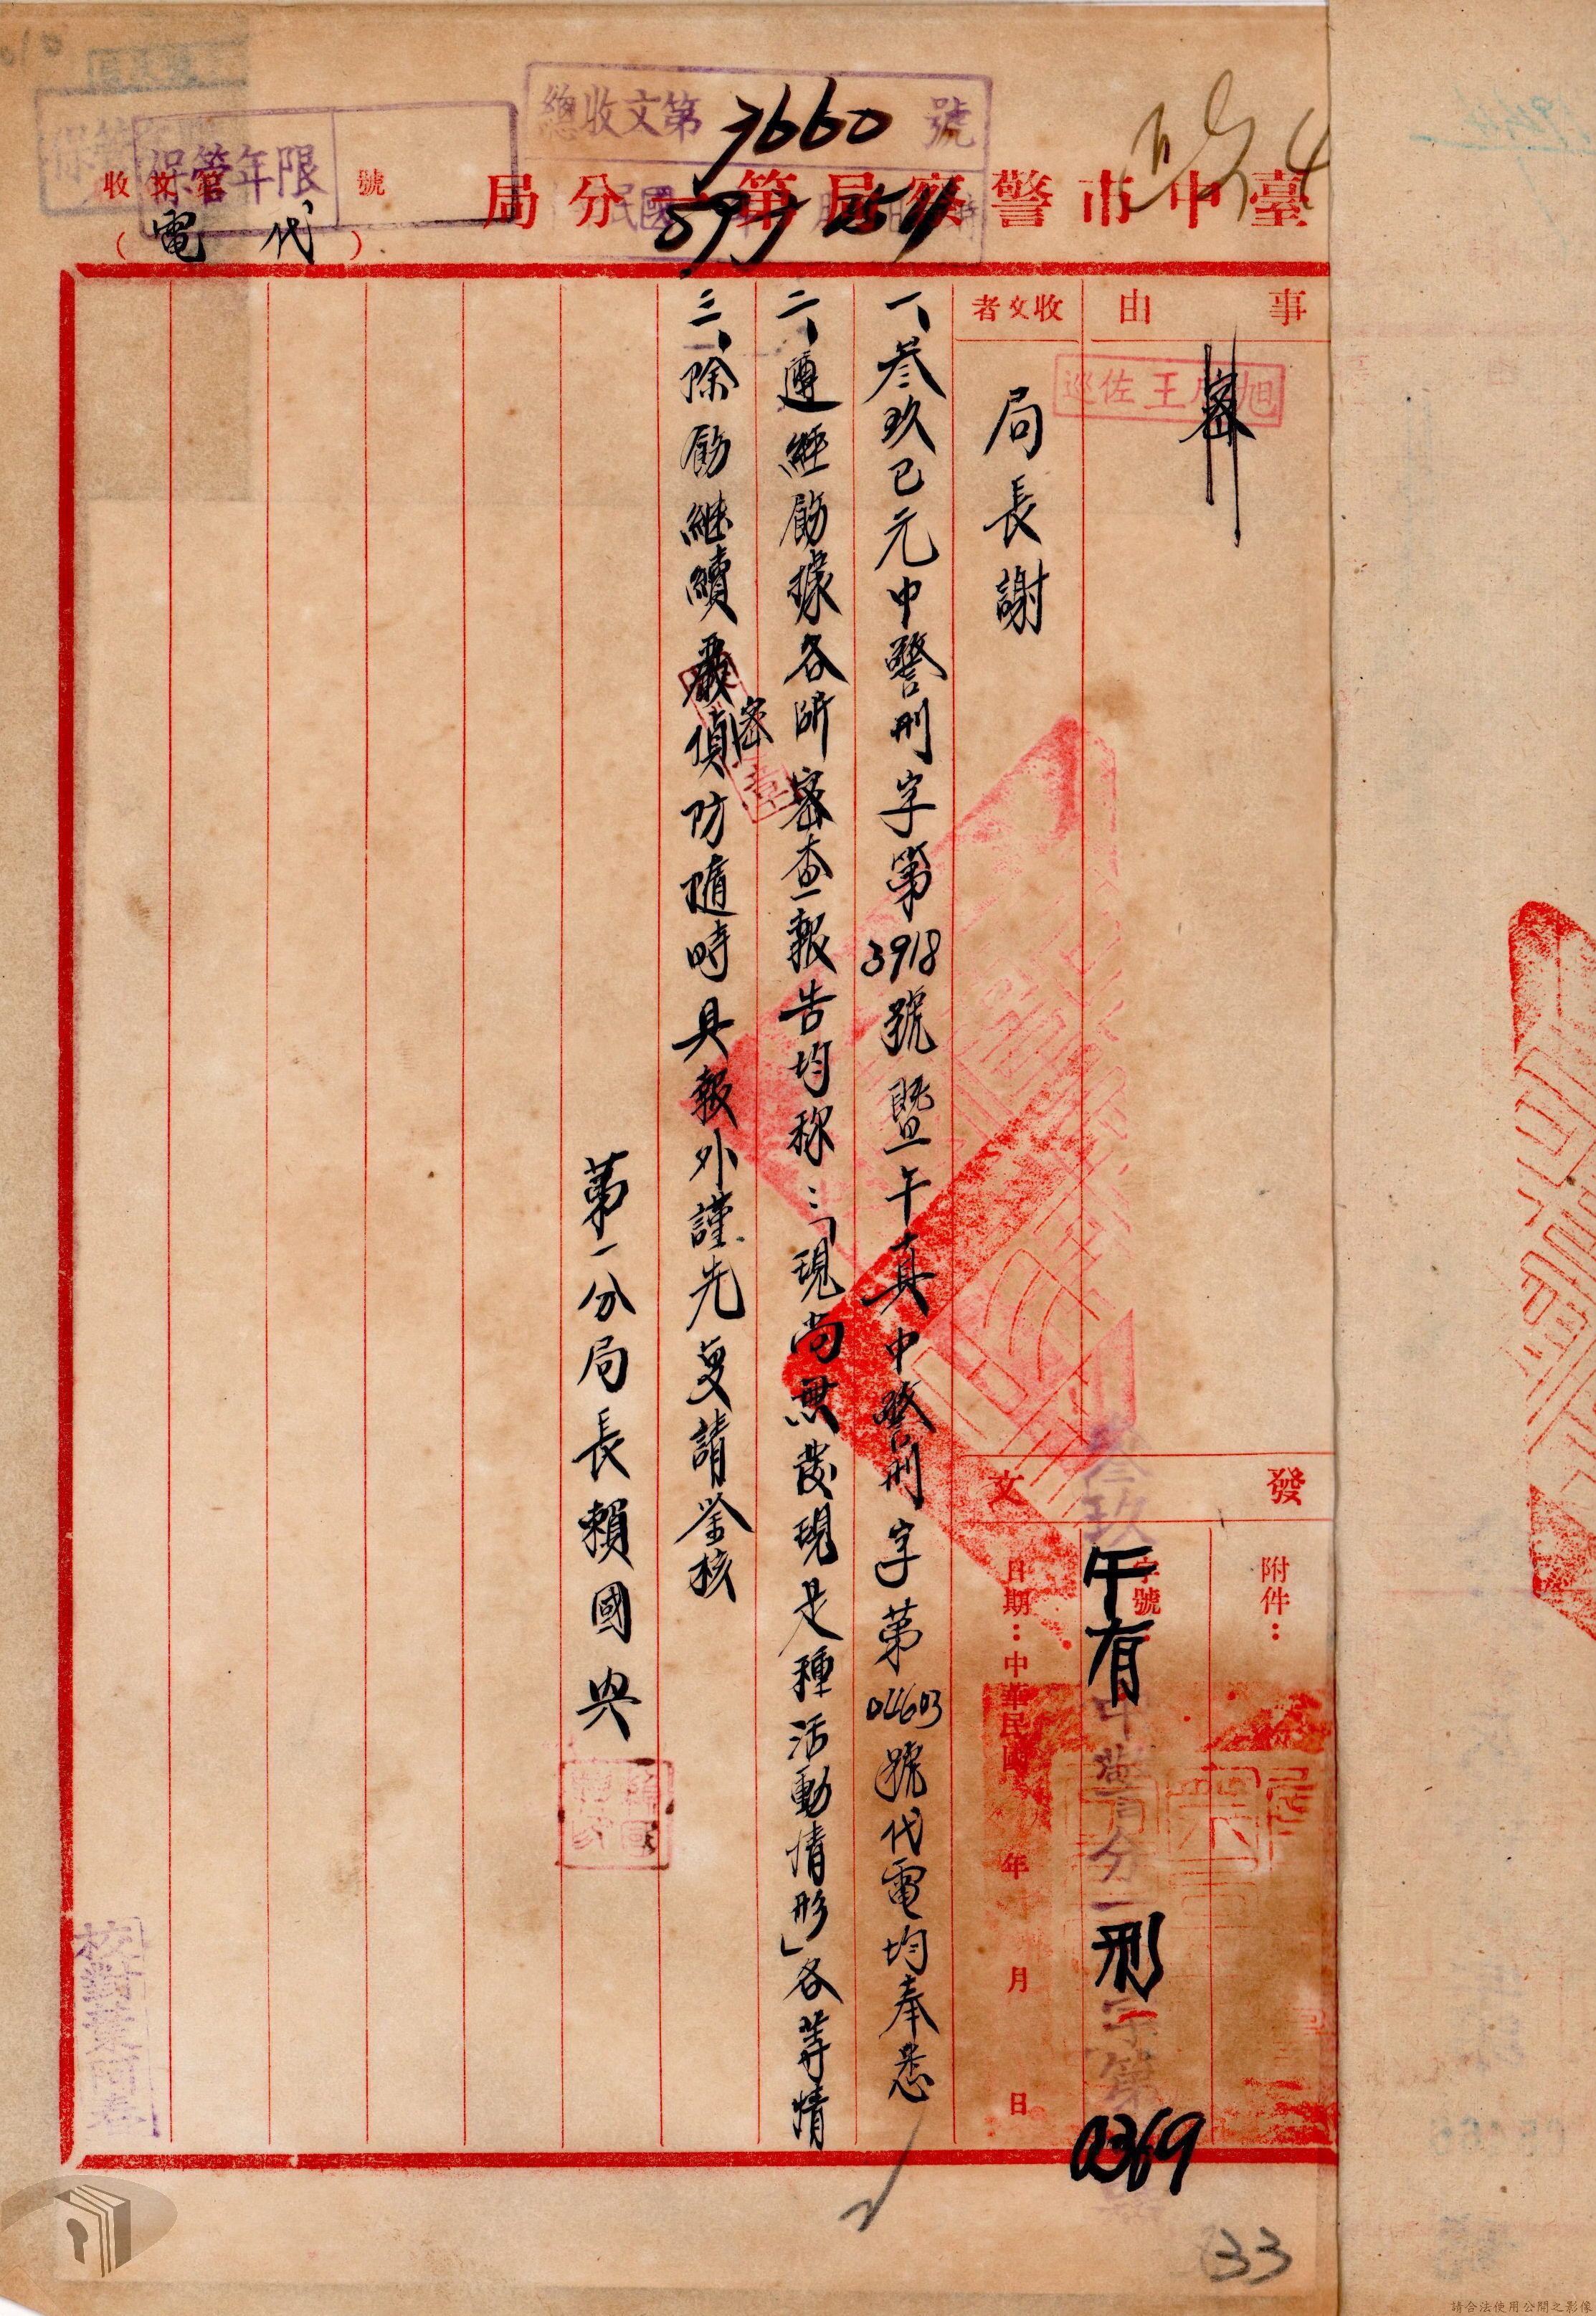 總收文第3660號
臺中市警察局第一分局
（代電）
保管年限
收文 號
事由
密
巡佐王 旭
收文者
局長謝
發文
附件：
字號：
叁玖午有中警分一刑字第0369號
日期：中華民國 年 月 日
一、叁玖巳元中警刑字第3918號暨午真中警刑字第04603號代電均奉悉
二、遵經飭據各所密查報告均稱：「現尚無發現是種活動情形」各等情
三、除飭繼續嚴密偵防隨時具報外謹先復請鑒核
第一分局長賴國興
校對葉開春
33
請合法使用公開之影像